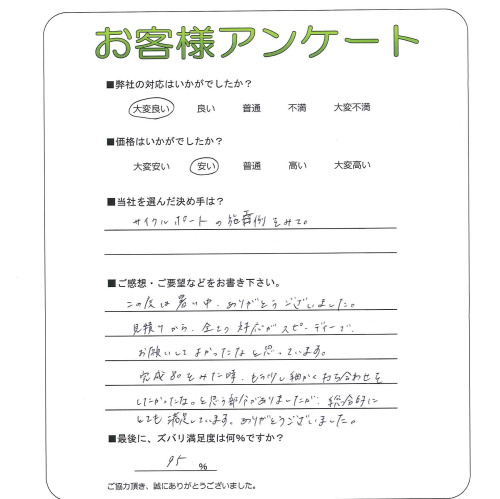 お客様アンケート
■弊社の対応はいかがでしたか?
大変良い 良い 普通 不満 大変不満
■価格はいかがでしたか?
大変安い 安い 普通 高い 大変高い
■当社を選んだ決め手は?
サイクルポートの施工例をみて。
■ご感想・ご要望などをお書き下さい。
この度は暑い中、ありがとうございました。
見積りから、全ての対応がスピーディーで、
お願いしてよかったなと思っています。
完成品をみた時、もう少し細かく打ち合わせを
したかったな。と思う部分がありましたが、総合的に
とても満足しています。ありがとうございました。
■最後に、ズバリ満足度は何%ですか?
95 %
ご協力頂き、誠にありがとうございました。